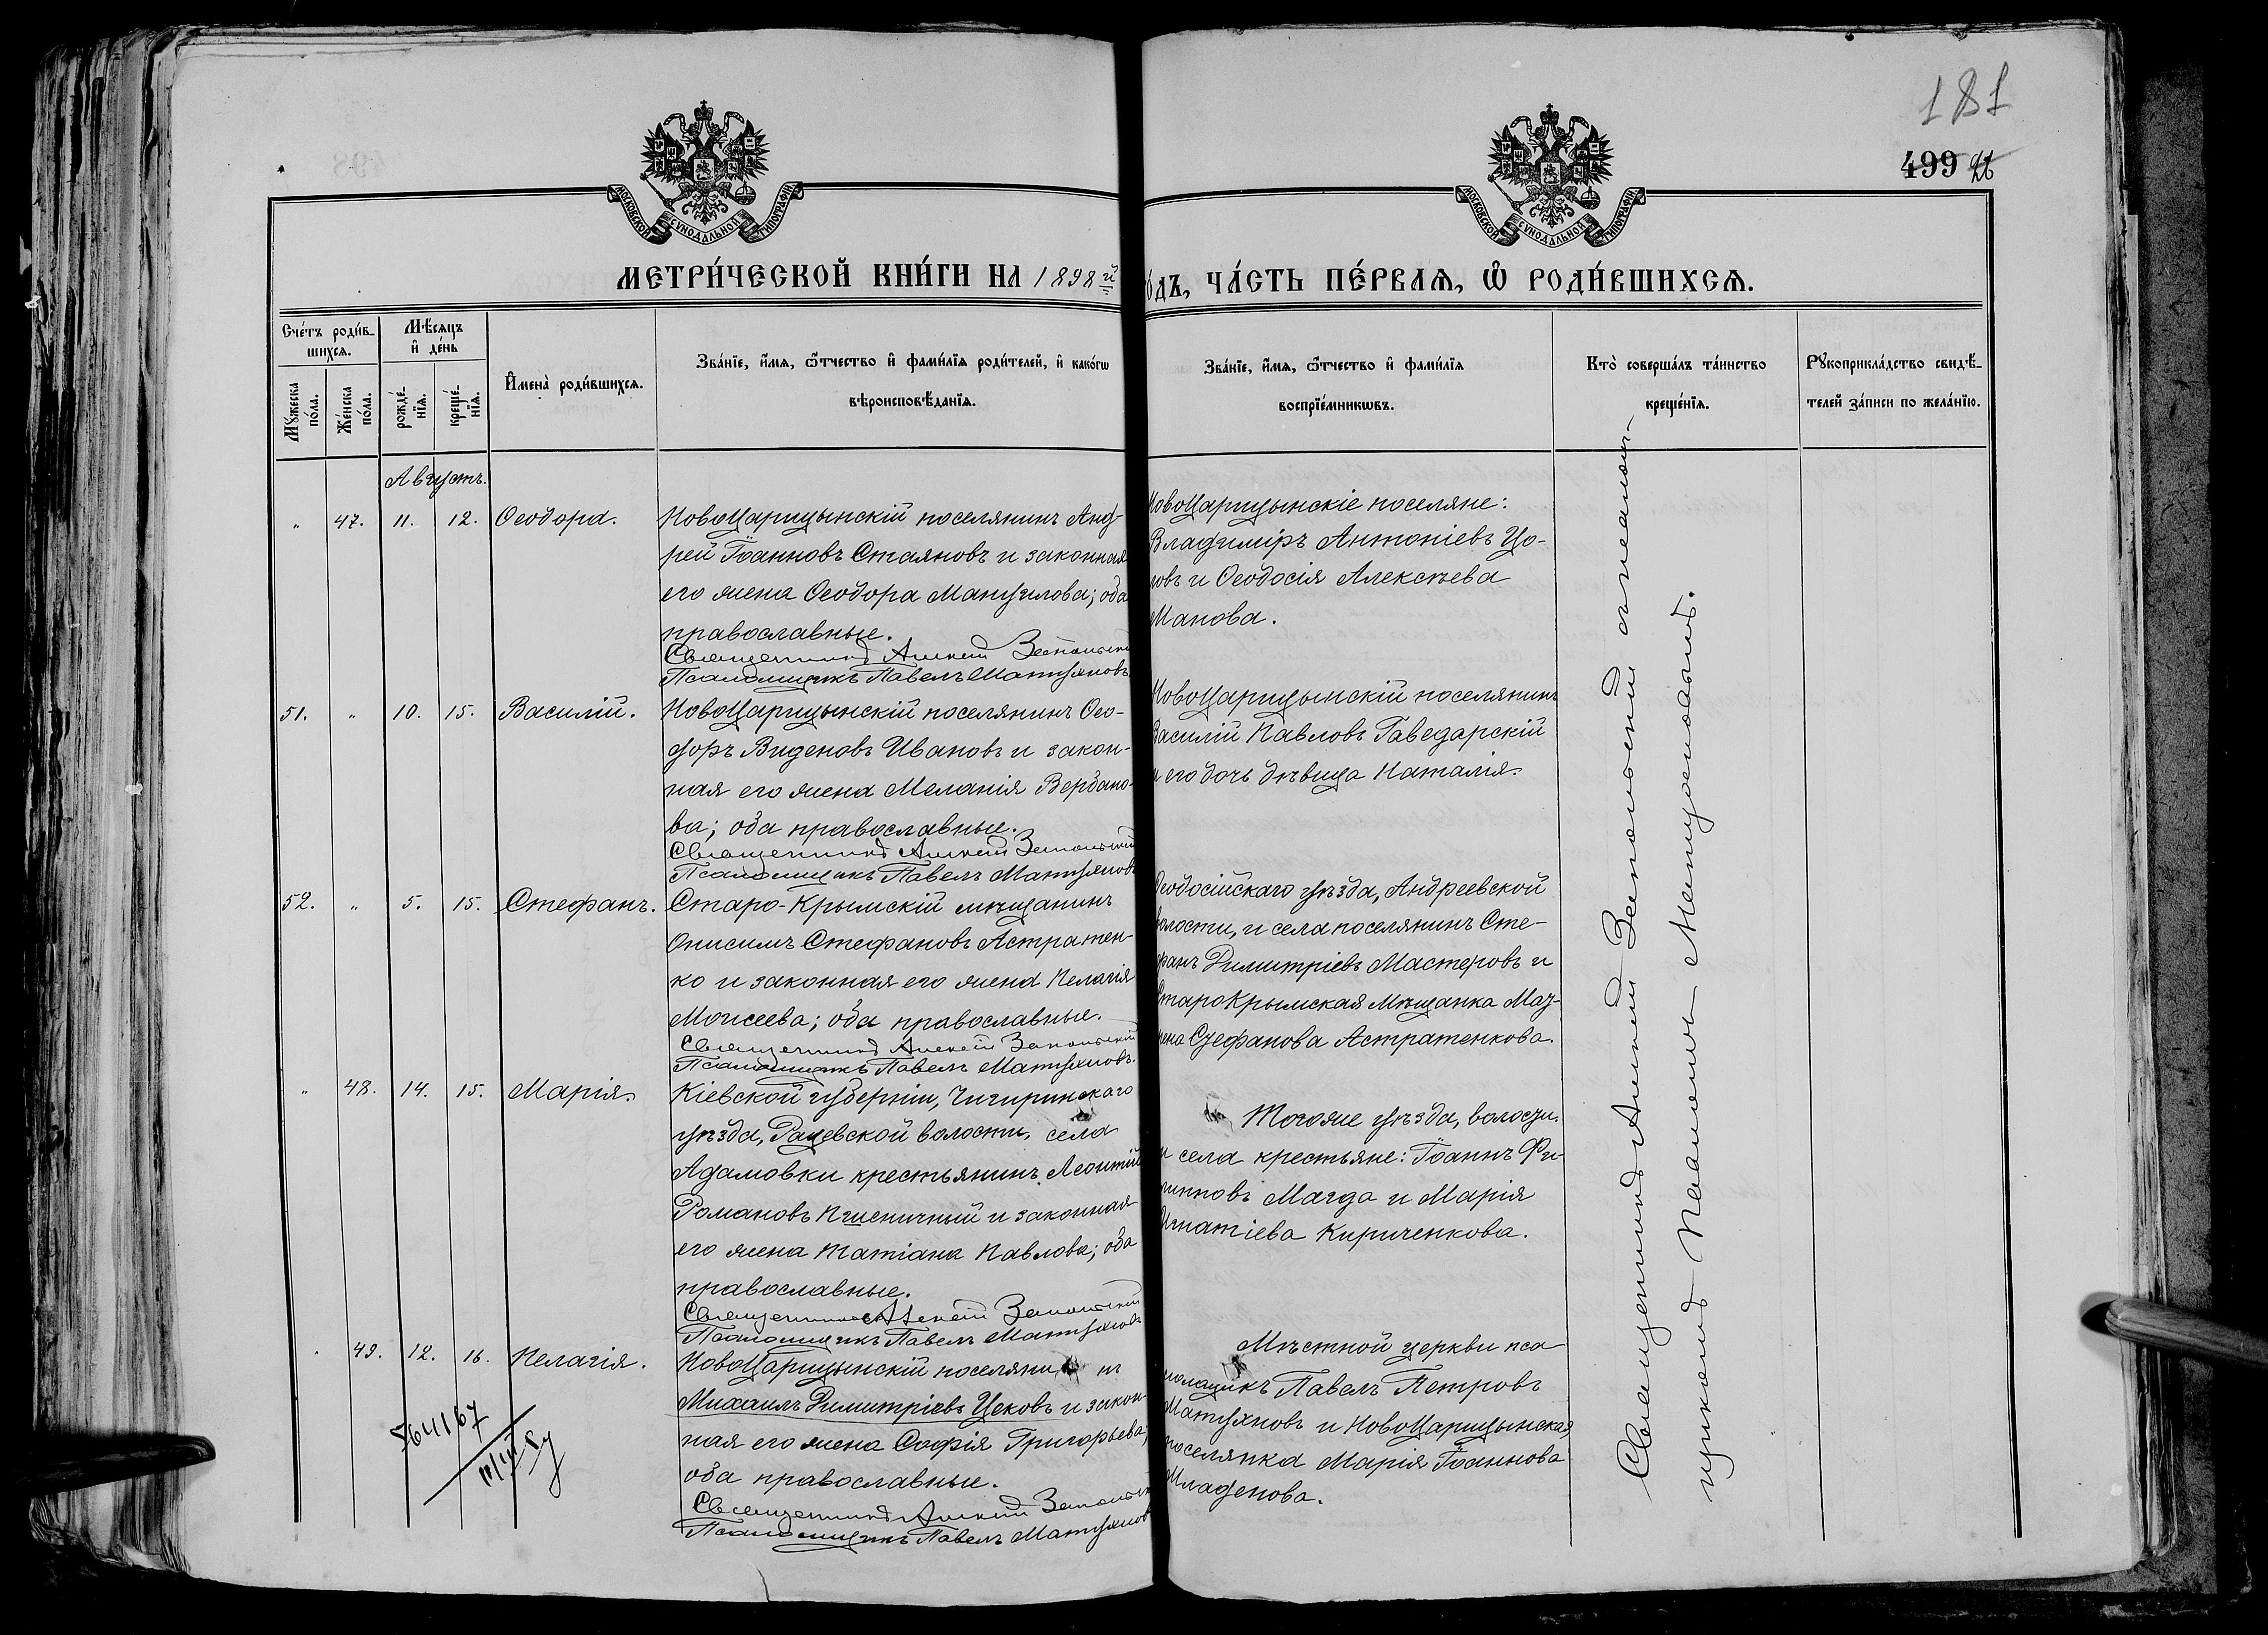 181
499 26
МОСКОВСКОЙ СѴНОДАЛЬНОЙ ТИПОГРАФІИ
МОСКОВСКОЙ СѴНОДАЛЬНОЙ ТИПОГРАФІИ
МЕТРИ́ЧЕСКОЙ КНИ́ГИ НА 1898й
о́дъ, ЧА́СТЬ ПЕ́РВАѦ, Ѿ РОДИ́ВШИХСѦ.
Сче́тъ роди́в-
шихсѧ.
Мꙋ́жеска
по́ла.
Же́нска
по́ла.
Мѣ́сѧцъ
и҆ де́нь
рожде́-
нїѧ.
креще́-
нїѧ.
И҆мена̀ роди́вшихсѧ.
Зва́нїе, и҆́мѧ, ѻ҆́тчество и҆ фами́лїѧ роди́телей, и҆ како́гѡ
вѣроисповѣ́данїѧ.
Зва́нїе, и҆́мѧ, ѻ҆́тчество и҆ фами́лїѧ
воспрїе́мникѡвъ.
Кто̀ соверша́лъ та́инство
креще́нїѧ.
Рꙋкоприкла́дство свидѣ́-
телей за́писи по жела́нїю.
Августъ.
" 47. 11. 12. Ѳеодора.
НовоЦарицынскій поселянинъ Анд-
рей Іоанновъ Стаяновъ и законная
его жена Ѳеодора Мануилова; оба
православные.
Священникъ Алексій Запольскій
Псаломщикъ Павелъ Матухновъ
НовоЦарицынскіе поселяне:
Владиміръ Антоніевъ Цо-
новъ и Ѳеодосія Алексѣева
Манова.
51. " 10. 15. Василій.
НовоЦарицынскій поселянинъ Ѳео-
доръ Виденовъ Ивановъ и закон-
ная его жена Меланія Вербано-
ва; оба православные.
Священникъ Алексій Запольскій
Псаломщикъ Павелъ Матухновъ
НовоЦарицынскій поселянинъ
Василій Павловъ Гаведарскій
и его дочь дѣвица Наталія.
52. " 5. 15. Стефанъ.
Старо-Крымскій мѣщанинъ
Онисимъ Стефановъ Астратен-
ко и законная его жена Пелагія
Моисеева; оба православные.
Священникъ Алексій Запольскій
Псаломщикъ Павелъ Матухновъ.
Ѳеодосійскаго уѣзда, Андреевской
волости, и села поселянинъ Сте-
фанъ Димитріевъ Мастеровъ и
СтароКрымская мѣщанка Мат-
рена Стефанова Астратенкова.
" 48. 14. 15. Марія.
Кіевской губерніи, Чигиринскаго
уѣзда, Рацевской волости, села
Адамовки крестьянинъ Леонтій
Романовъ Пшеничный и законная
его жена Татіана Павлова; оба
православные.
Священникъ Алексій Запольскій
Псаломщикъ Павелъ Матухновъ
Тогоже уѣзда, волости
и села крестьяне: Іоаннъ Фи-
липповъ Магда и Марія
Игнатіева Кириченкова.
49. 12. 16. Пелагія.
НовоЦарицынскій поселянинъ
Михаилъ Димитріевъ Цековъ и закон-
ная его жена Софія Григорьева;
оба православные.
Священникъ Алексій Запольскій
Псаломщикъ Павелъ Матухновъ
Мѣстной церкви пса-
ломщикъ Павелъ Петровъ
Матухновъ и НовоЦарицынская
поселянка Марія Іоаннова
Младенова.
Священникъ Алексій Запольскій съ псалом-
щикомъ Павломъ Матухновымъ.